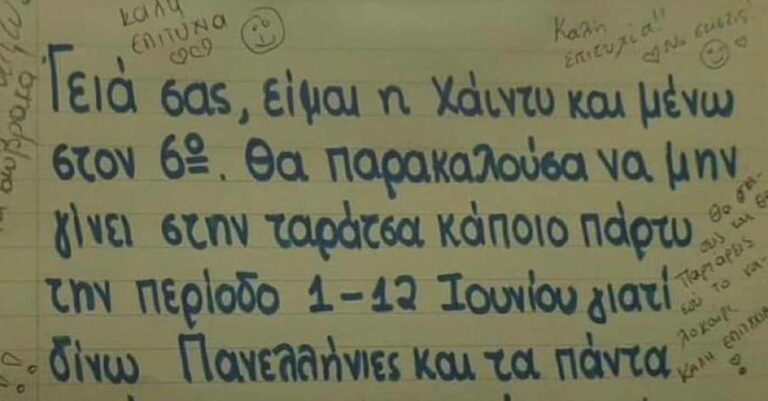 ΚΑΛΗ
ΕΠΙΤΥΧΙΑ
Καλή
επιτυχία!!
Να είσαι
Γειά σας, είμαι η Χάιντυ και μένω
στον 6º. Θα παρακαλούσα να μην
γίνει στην ταράτσα κάποιο πάρτυ
την περίοδο 1-12 Ιουνίου γιατί
δίνω Πανελλήνιες και τα πάντα
Θα
και θα
το κα-
ΚΑΛΗ ΕΠΙΤΥΧΙΑ